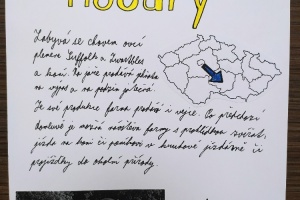 Zabývá se chovem ovcí
plemen Suffolk a Zwartbles
a koní. Na jaře prodává plemena
na výpas a na podzim jehňata.
Ze své produkce farma prodává i vejce. Po předchozí
domluvě je možná návštěva farmy s prohlídkou zvířat,
jízda na koni či poníkovi v kruhové jízdárně či
projížďky do okolní přírody.